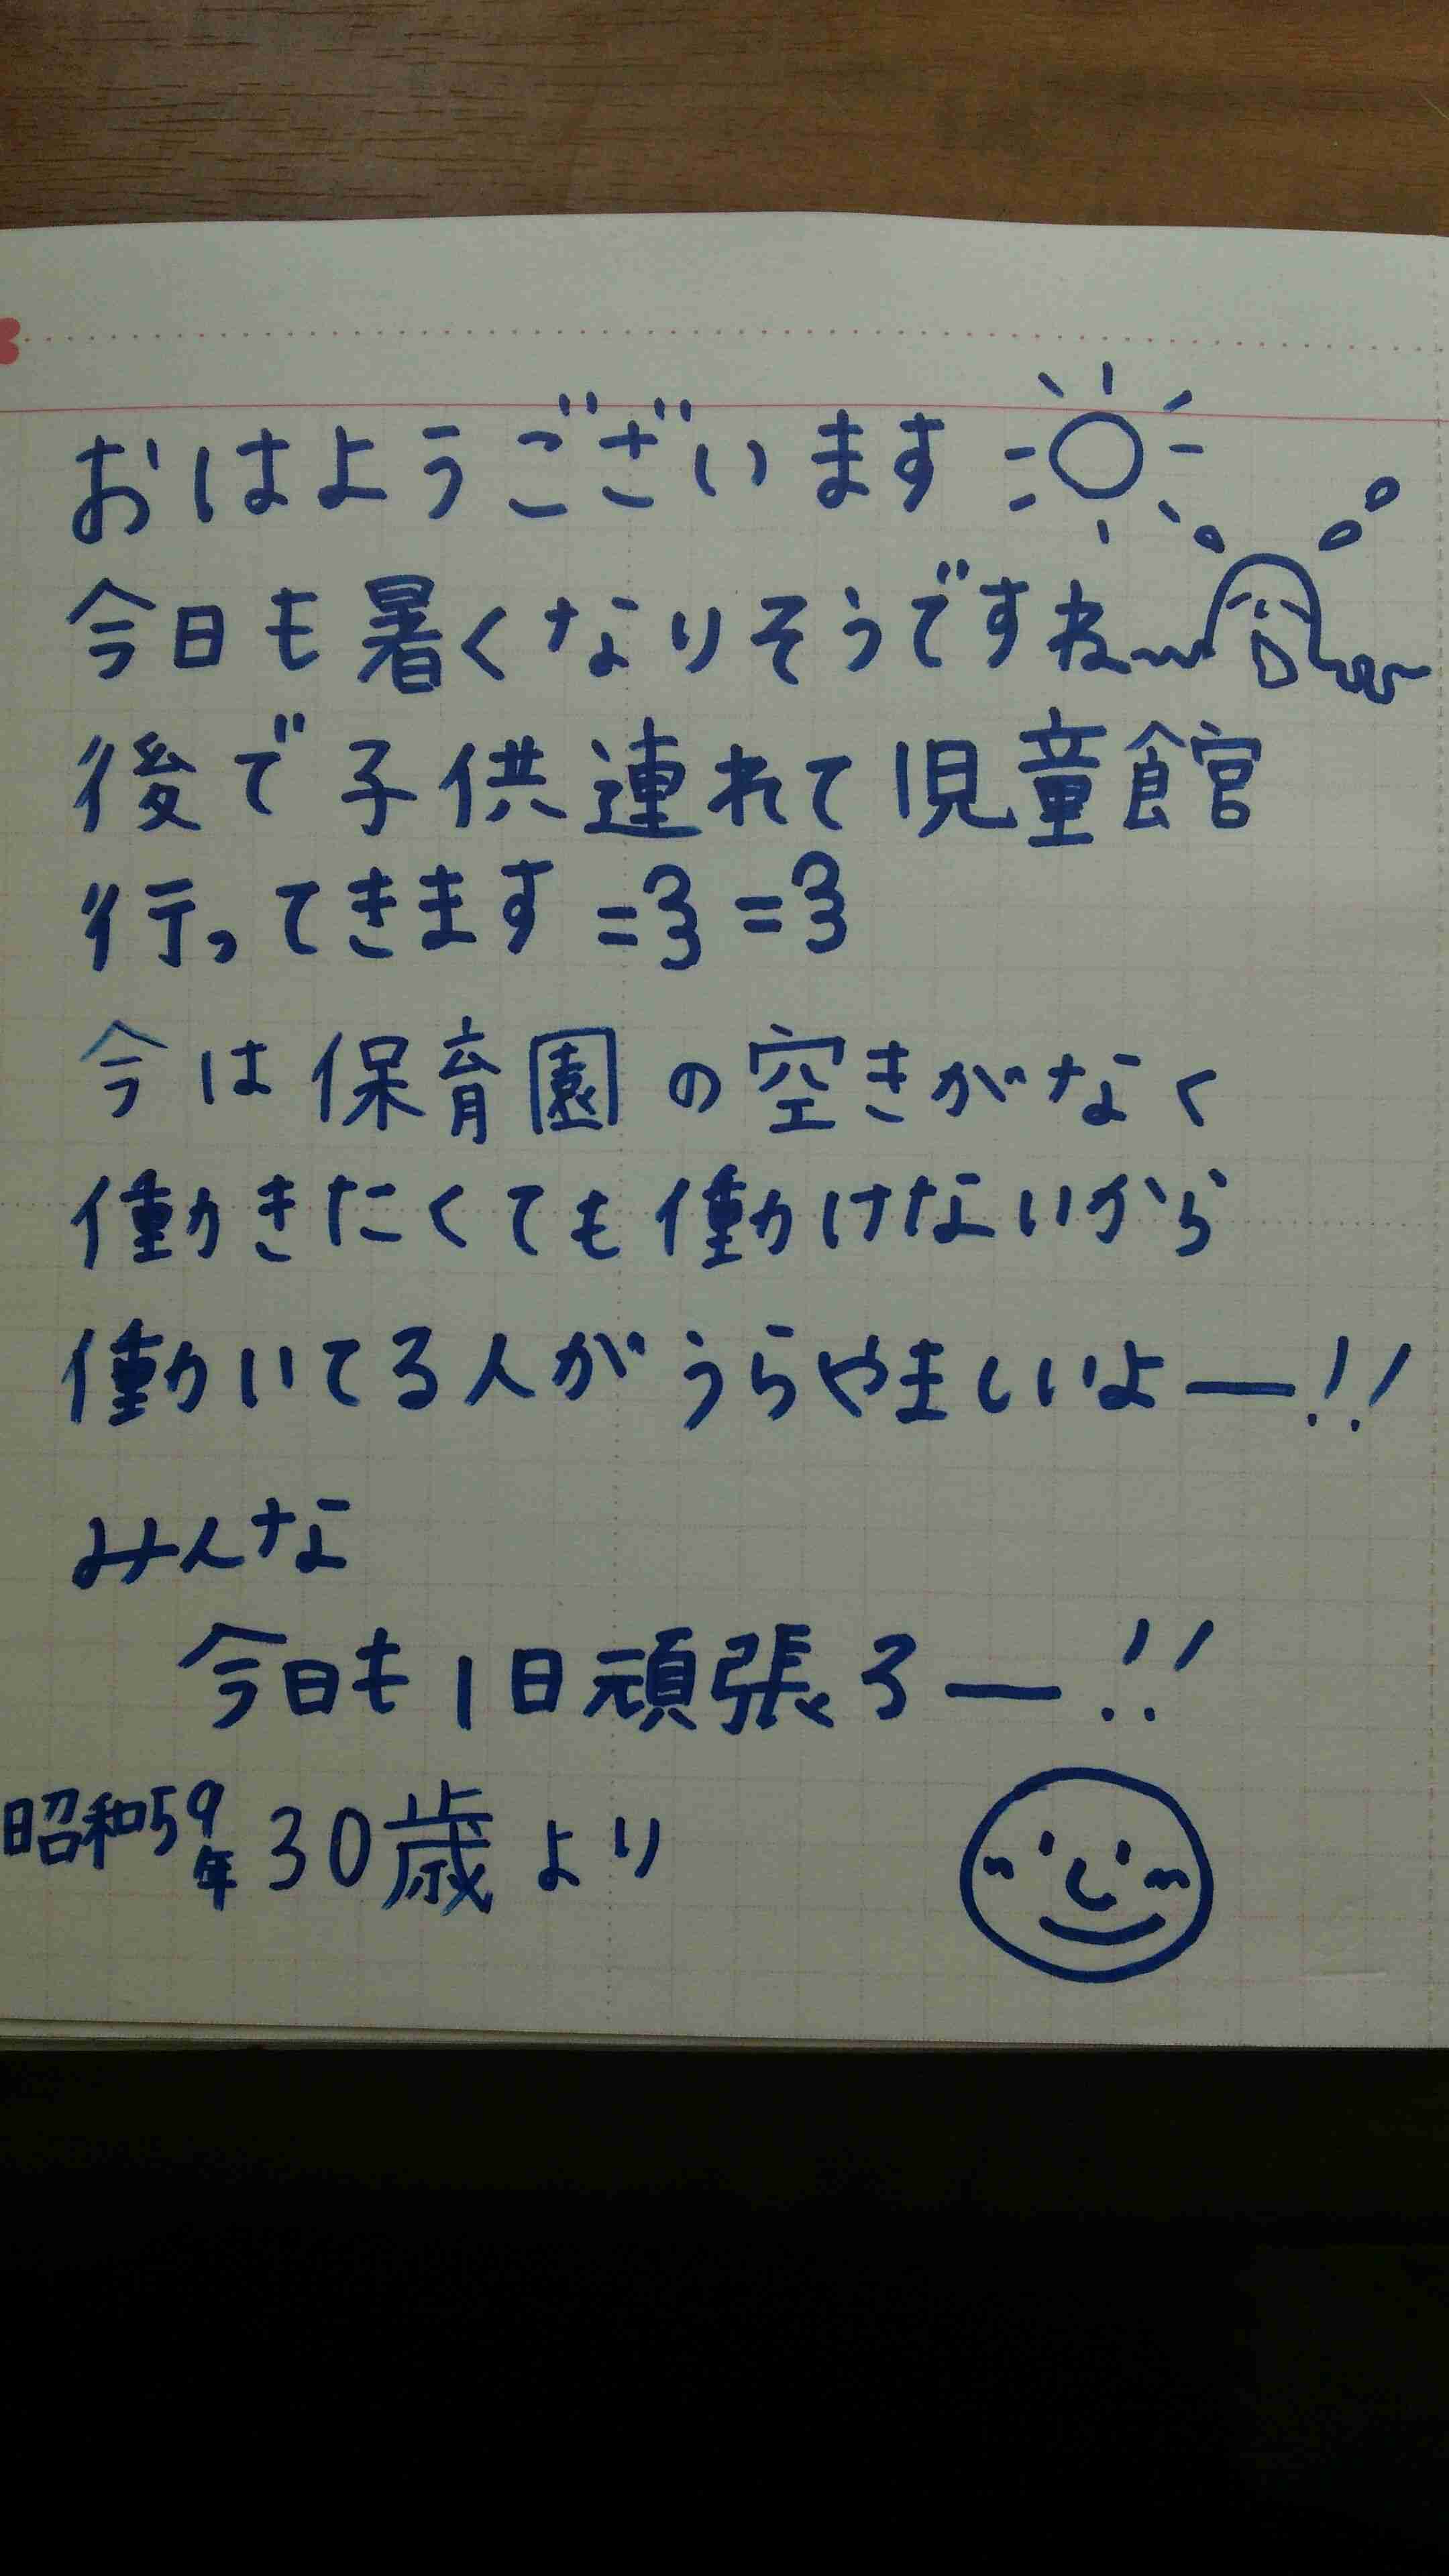 おはようございます
今日も暑くなりそうですね〜
後で子供連れて児童館
行ってきます=3=3
今は保育園の空きがなく
働きたくても働けないから
働いてる人がうらやましいよー!!
みんな
今日も1日頑張ろー!!
昭和59年30歳より